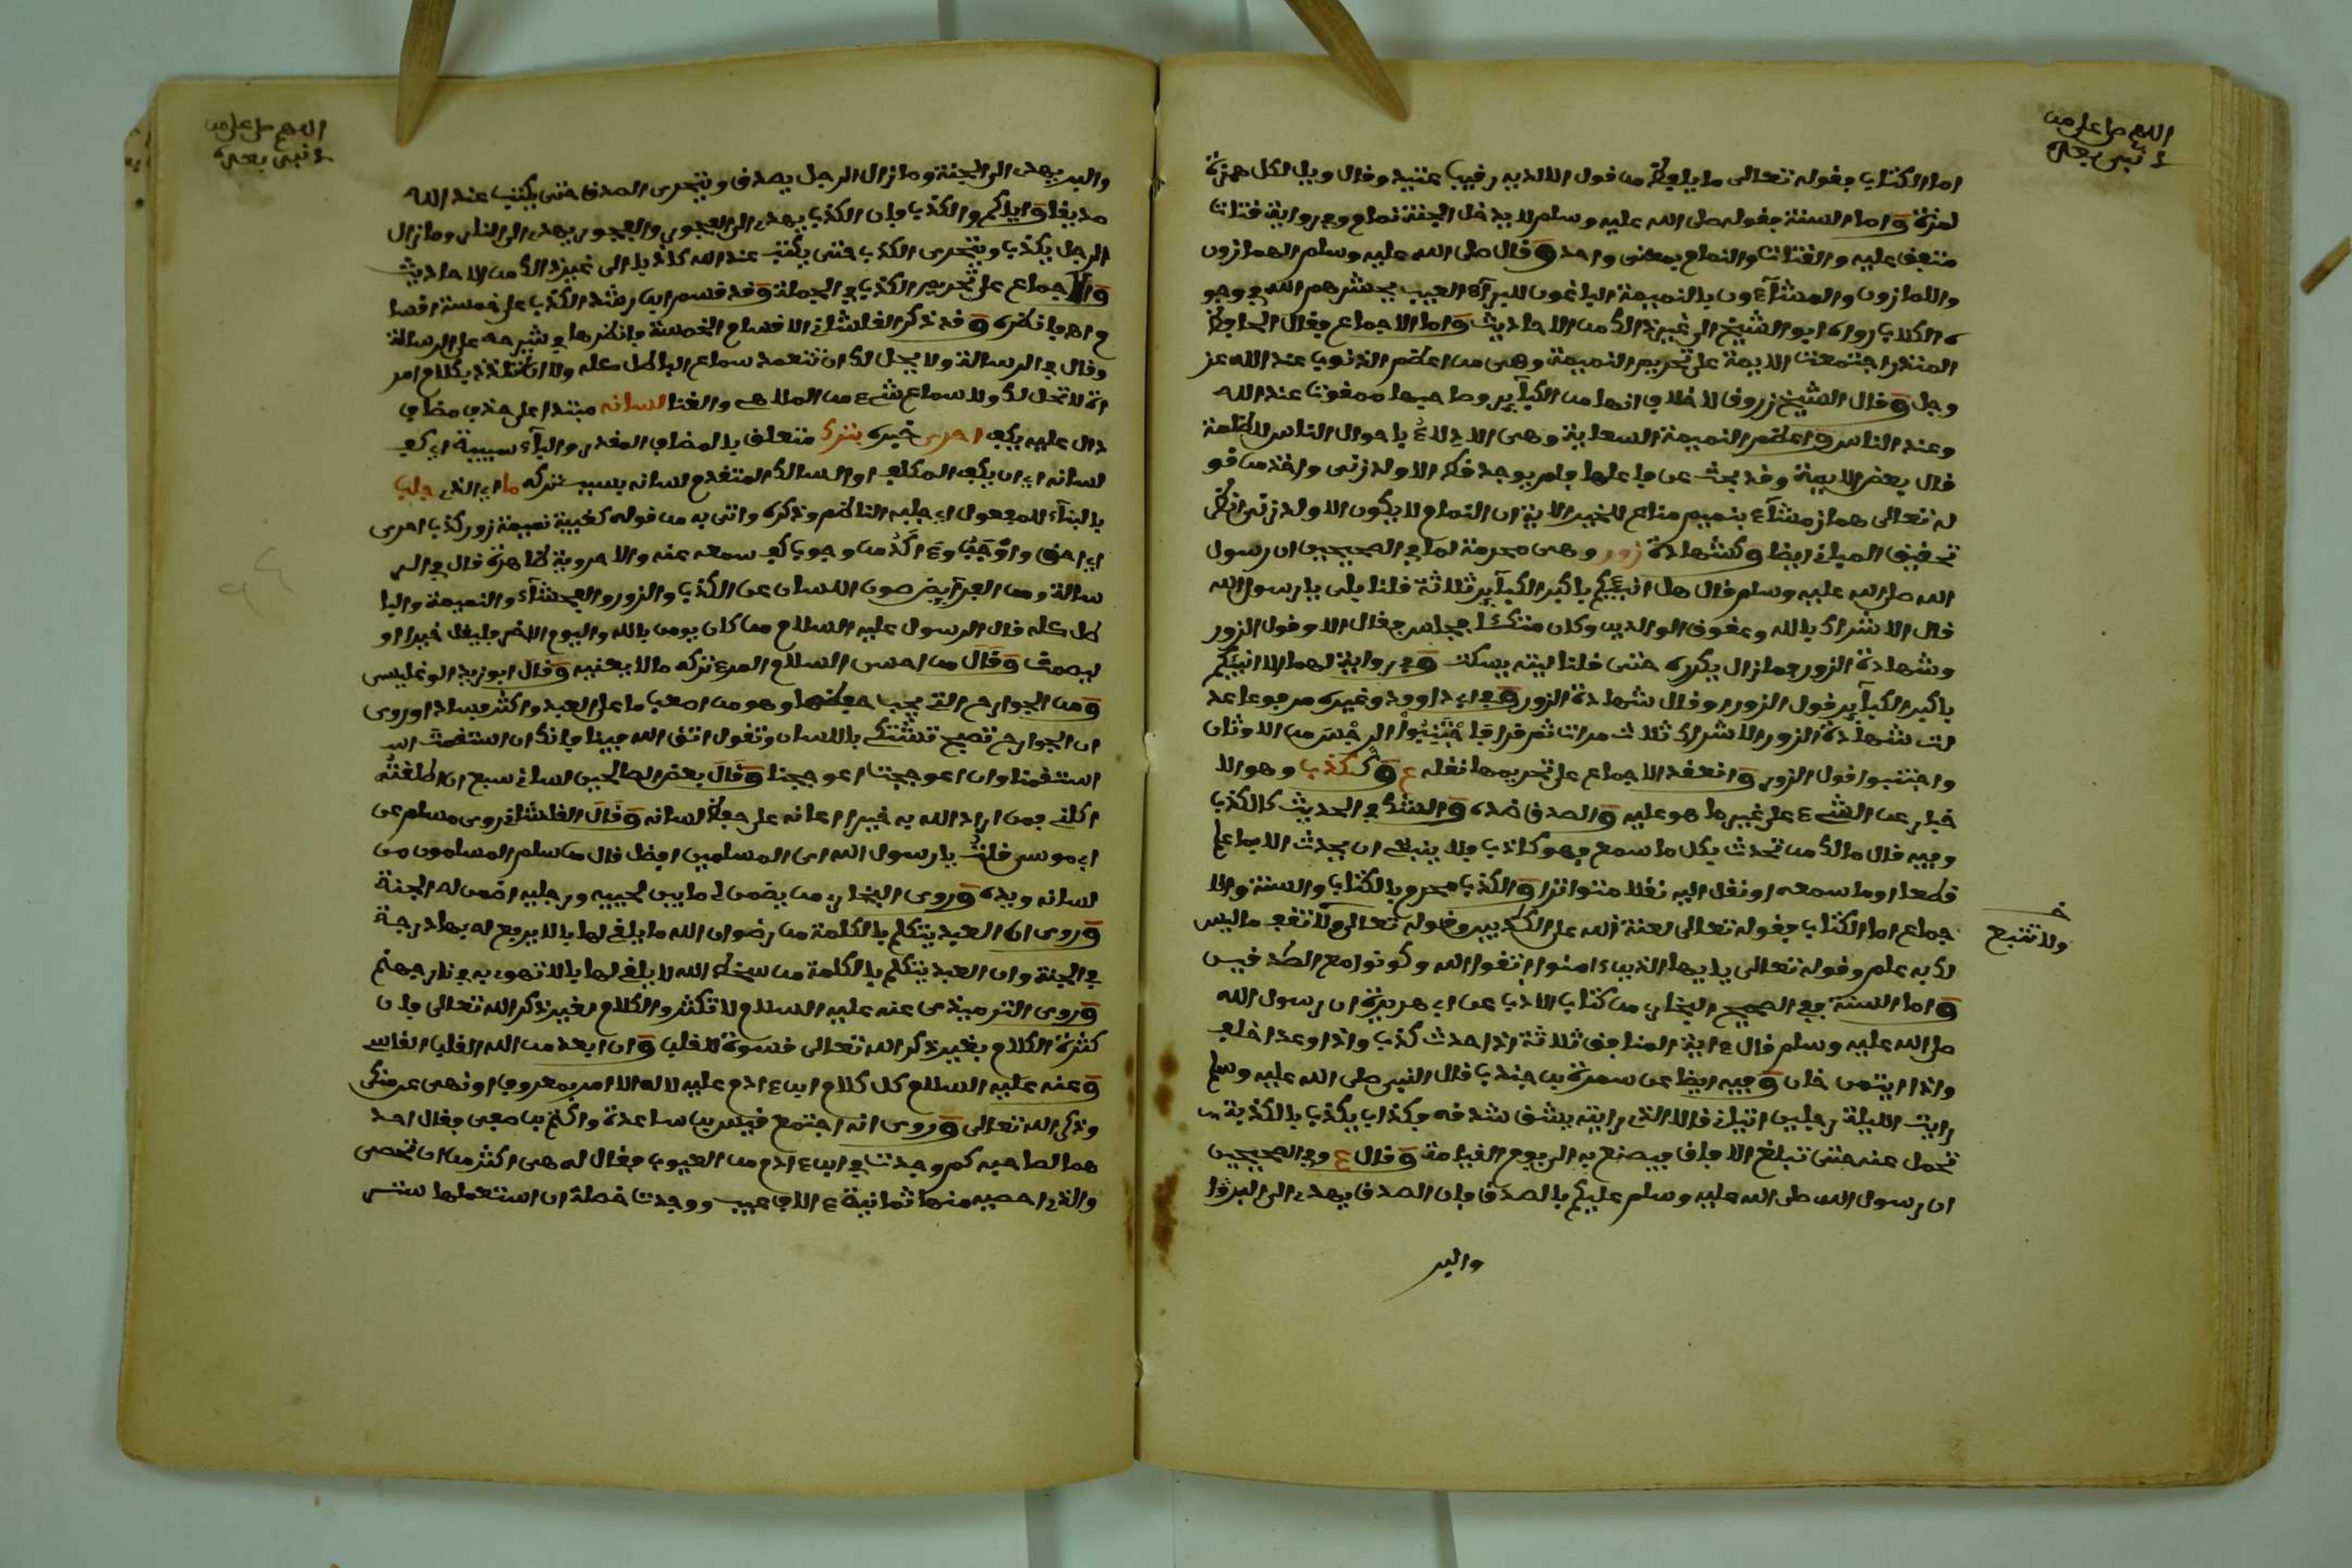 اللهم صل على من
لا نبي بعده
اما الكتاب فقوله تعالى ما يلفظ من قول الا لديه رقيب عتيد وقال ويل لكل همزة
لمزة واما السنة فقوله صلى الله عليه وسلم لا يدخل الجنة نمام وفي رواية قتات
متفق عليه والقتات والنمام بمعنى واحد وقال صلى الله عليه وسلم الهمازون
واللمازون والمشاءون بالنميمة الباغون للبرآء العيب يحشرهم الله في وجو
ه الكلاب رواه ابو الشيخ الى غير ذلك من الاحاديث واما الاجماع فقال الحافظ
المنذر اجتمعت الايمة على تحريم النميمة وهي من اعظم الذنوب عند الله عز
وجل وقال الشيخ زروق لا خلاف انها من الكبآير وصاحبها ممقوت عند الله
وعند الناس واعظم النميمة السعاية وهي الادلاء باحوال الناس للظلمة
قال بعض الايمة وقد بحث عن فاعلها فلم يوجد قط الا ولد زنى واخذ من قو
له تعالى هماز مشآء بنميم مناع للخير الاية ان النمام لا يكون الا ولد زنى انظر
تحقيق المباني ايضا وكشهادة زور وهي محرمة لما في الصحيحين ان رسول
الله صلى الله عليه وسلم قال هل انبئكم باكبر الكبآير ثلاثة قلنا بلى يا رسول الله
قال الاشراك بالله وعقوق الوالدين وكان متكئا فجلس فقال الا وقول الزور
وشهادة الزور فما زال يكرره حتى قلنا ليته يسكت وفي رواية لهما الا انبئكم
باكبر الكبآير قول الزور او قال شهادة الزور وفي ابي داوود وغيره مرفوعا عد
لت شهادة الزور الاشراك ثلاث مرات ثم قرا فاجتنبوا الرجس من الاوثان
واجتنبوا قول الزور وانعقد الاجماع على تحريمها نقله ع وككذب وهو الا
خبار عن الشيء على غير ما هو عليه والصدق ضده والشك في الحديث كالكذب
وفيه قال مالك من تحدث بكل ما سمع فهو كاذب ولا ينبغي ان يحدث الا بما علم
قطعا او ما سمعه او نقل اليه نقلا متواترا والكذب محرم بالكتاب والسنة والا
جماع اما الكتاب فقوله تعالى لعنة الله على الكاذبين وقوله تعالى ولا تقف ما ليس
خـ
ولا تتبع
لك به علم وقوله تعالى يايها الذين ءامنوا اتقوا الله وكونوا مع الصادقين
واما السنة ففي الصحيح البخاري من كتاب الادب عن ابي هريرة ان رسول الله
صلى الله عليه وسلم قال ءاية المنافق ثلاثة اذا حدث كذب واذا وعد اخلف
واذا ايتمن خان وفيه ايضا عن سمرة بن جندب قال النبي صلى الله عليه وسلم
رايت الليلة رجلين اتياني قالا الذي رايته يشق شدقه فكذاب يكذب بالكذبة
تحمل عنه حتى تبلغ الافاق فيصنع به الى يوم القيامة وقال ع وفي الصحيحين
ان رسول الله صلى الله عليه وسلم عليكم بالصدق فان الصدق يهدي الى البر
والبر
اللهم صل على من
لا نبي بعده
والبر يهدي الى الجنة وما زال الرجل يصدق ويتحرى الصدق حتى يكتب عند الله
صديقا واياكم والكذب فان الكذب يهدي الى الفجور والفجور يهدي الى النار وما زال
الرجل يكذب ويتحرى الكذب حتى يكتب عند الله كذابا الى غير ذلك من الاحاديث
والاجماع على تحريم الكذب في الجملة وقد قسم ابن رشد الكذب على خمسة اقسا
م فانظره وقد ذكر القلشاني الاقسام الخمسة فانظرها في شرحه على الرسالة
وقال في الرسالة ولا يحل لك ان تتعمد سماع الباطل كله ولا ان تتلذذ بكلام امر
اة لا تحل لك ولا سماع شيء من الملاهي والغنا لسانه مبتدا على حذف مضاف
دال عليه يكف احرى خبره بترك متعلق بالمضاف المقدر والبآء سببية اي كف
لسانه اي ان يكف المكلف او السالك المتقدم لسانه بسبب تركه ما اي الذي جلب
بالبنآء للمفعول اي جلبه الناظم وذكره واتى به من قوله كغيبة نميمة زور كذب احرى
اي احق واوجب وءاكد من وجوب كف سمعه عنه والاحروية ظاهرة قال في الر
سالة ومن الفرآيض صون اللسان عن الكذب والزور والفحشآء والنميمة والبا
طل كله قال الرسول عليه السلام من كان يومن بالله واليوم الاخر فليقل خيرا او
ليصمت وقال من احسن السلام المرء تركه ما لا يعنيه وقال ابو زيد الوغليسي
ومن الجوارح التي يجب حفظها وهو من اصعب ما على العبد واكثر فسادا وروى
ان الجوارح تصبح تشتكي باللسان وتقول اتق الله فينا فانك ان استقمت
استقمنا وان اعوججت اعوججنا وقال بعض الصالحين لساني سبع ان اطلقته
اكلني فمن اراد الله به خيرا اعانه على حفظ لسانه وقال القلشاني روى مسلم عن
ابي موسى قلت يا رسول الله اي المسلمين افضل قال من سلم المسلمون من
لسانه ويده وروى البخاري من يضمن لي ما بين لحييه ورجليه اضمن له الجنة
وروى ان العبد يتكلم بالكلمة من رضوان الله ما يلقي لها بالا يرفع له بها درجة
في الجنة وان العبد يتكلم بالكلمة من سخط الله لا يلقي لها بالا تهوي به في نار جهنم
وروى الترميذي عنه عليه السلام لا تكثروا الكلام بغير ذكر الله تعالى فان
كثرة الكلام بغير ذكر الله تعالى قسوة للقلب وان ابعد من الله القلب القاسي
وعنه عليه السلام كل كلام ابن ءادم عليه لا له الا امر بمعروف او نهي عن منكر
وذكر الله تعالى وروى انه اجتمع قيس بن ساعدة واكثم بن صيفي فقال احد
هما لصاحبه كم وجدت في ابن ءادم من العيوب فقال له هي اكثر من ان تحصى
والذي احصيه منها ثمانية ءالاف عيب ووجدت خصلة ان استعملها ستر